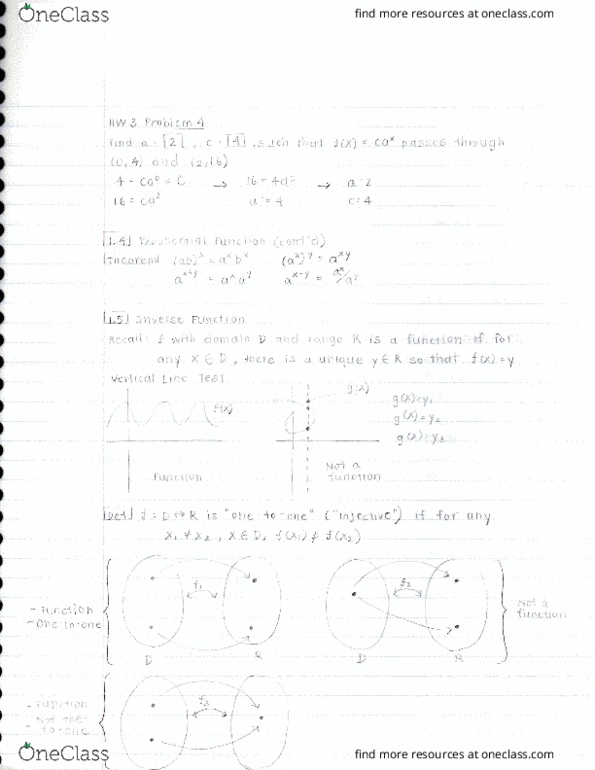 OneClass
find more resources at oneclass.com
HW 3 Problem 4
Find a = [2], c = [4], such that f(x) = ca^x passes through
(0,4) and (2,16)
4 = ca^0 = c → 16 = 4a^2 → a = 2
16 = ca^2 a^2 = 4 c = 4
1.4 Exponential Function (cont'd)
Theorem (ab)^x = a^x b^x (a^x)^y = a^xy
a^x+y = a^x a^y a^x-y = a^x/a^y
1.5 Inverse Function
Recall: f with domain D and range R is a function if for
any x ∈ D, there is a unique y ∈ R so that f(x) = y
Vertical Line Test
f(x)
g(x)
g(x) = y1
g(x) = y2
Function
Not a
function
Def f = D → R is "one-to-one" ("injective") if for any
x1 ≠ x2, x ∈ D, f(x1) ≠ f(x2)
- Function
- One-to-one
f1
D R
f2
D R
Not a
function
- Function
- Not one-
to-one
f3
OneClass
find more resources at oneclass.com